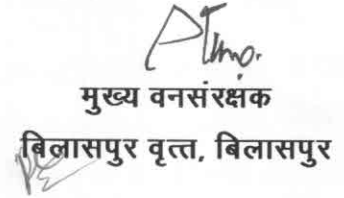 मुख्य वनसंरक्षक
बिलासपुर वृत्त, बिलासपुर